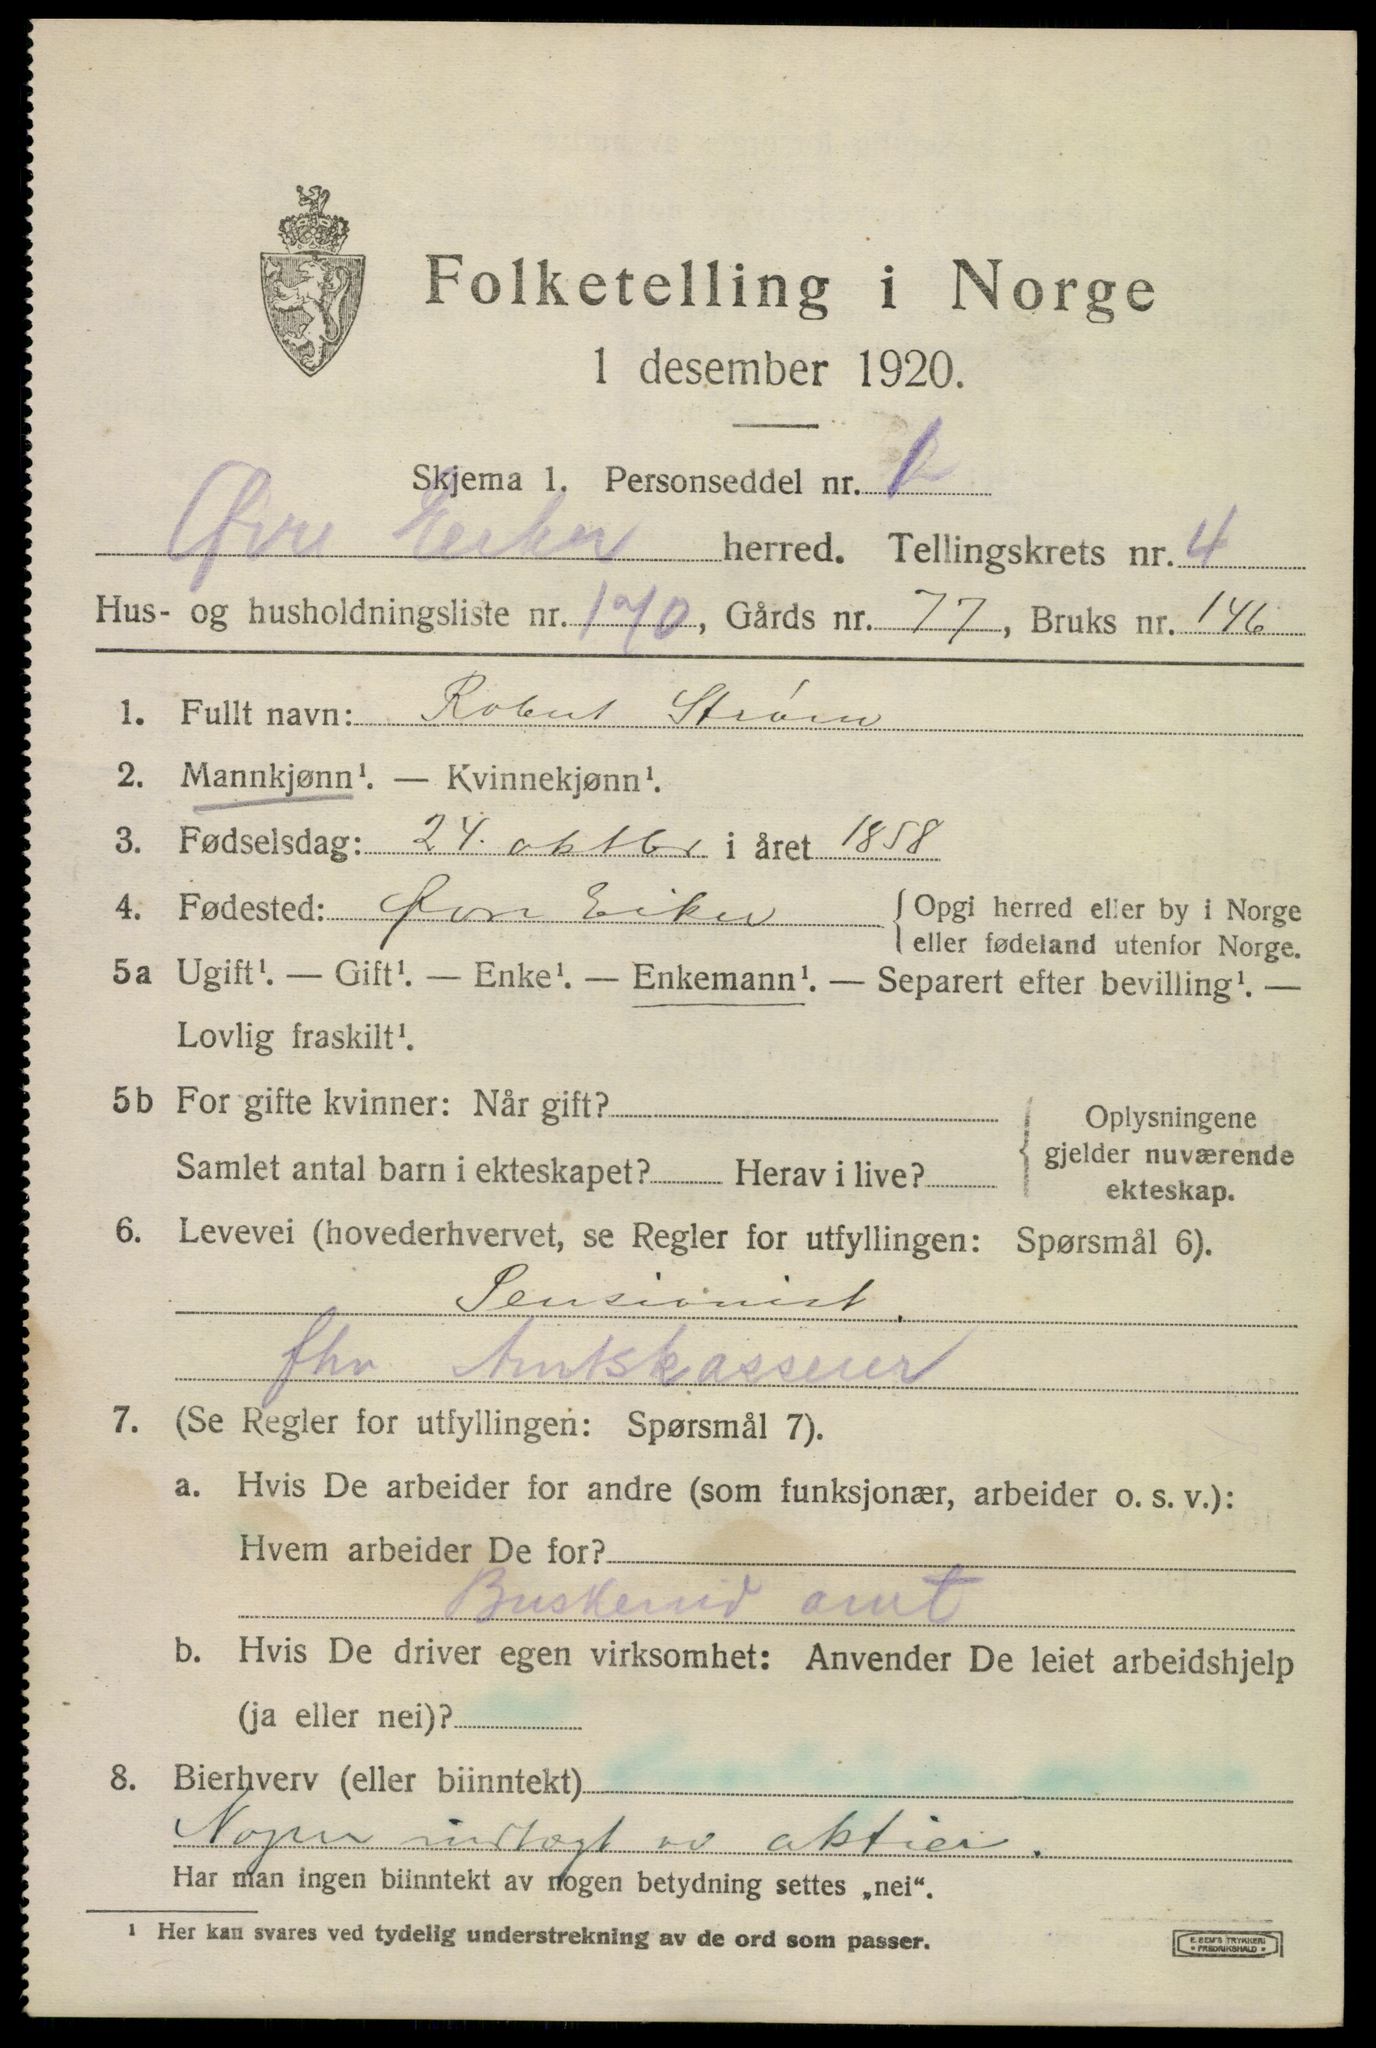 Folketelling i Norge
1 desember 1920.
Skjema 1. Personseddel nr.
Øvre Eeker herred. Tellingskrets nr. 4
Hus- og husholdningsliste nr. 170, Gårds nr. 77, Bruks nr. 146
1. Fullt navn: Robert Strøm
2. Mannkjønn¹. — Kvinnekjønn¹.
3. Fødselsdag: 24. oktbr i året 1858
4. Fødested: Øvre Eiker { Opgi herred eller by i Norge
eller fødeland utenfor Norge.
5a Ugift¹. — Gift¹. — Enke¹. — Enkemann¹. — Separert efter bevilling¹. —
Lovlig fraskilt¹.
5b For gifte kvinner: Når gift?
Samlet antal barn i ekteskapet? Herav i live?
{ Oplysningene
gjelder nuværende
ekteskap.
6. Levevei (hovederhvervet, se Regler for utfyllingen: Spørsmål 6).
Pensionist.
fhv Amtskasserer
7. (Se Regler for utfyllingen: Spørsmål 7).
a. Hvis De arbeider for andre (som funksjonær, arbeider o. s. v.):
Hvem arbeider De for?
Buskerud amt
b. Hvis De driver egen virksomhet: Anvender De leiet arbeidshjelp
(ja eller nei)?
8. Bierhverv (eller biinntekt)
Nogen indtægt av aktier.
Har man ingen biinntekt av nogen betydning settes „nei“.
¹ Her kan svares ved tydelig understrekning av de ord som passer.
E. SEM'S TRYKKERI
• FREDRIKSHALD •